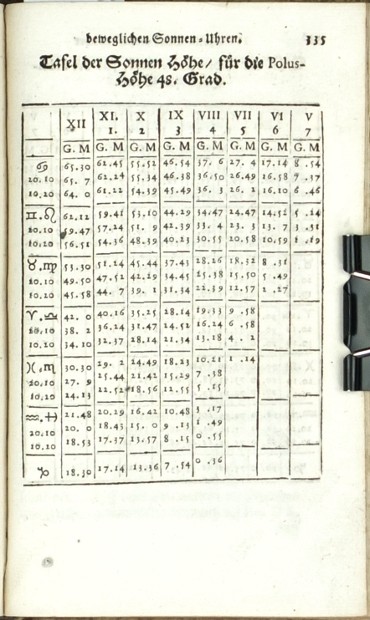 beweglichen Sonnen-Uhren. 335
Tafel der Sonnen Höhe/ für die Polus-
Höhe 48. Grad.
XII XI. X IX VIII VII VI V
1. 2 3 4 5 6 7
G. M G. M G. M G. M G. M G. M G. M G. M
♋ 65.30 62.45 55.52 46.54 37. 6 27. 4 17.14 8.54
20.10 65. 7 62.24 55.34 46.38 36.50 26.49 16.58 7.37
10.20 64. 0 61.22 54.39 45.49 36. 3 26. 2 16.10 6.46
♊.♌ 62.12 59.41 53.10 44.29 34.47 24.47 14.52 5.14
20.10 59.47 57.24 51. 9 42.39 33. 4 23. 3 13. 7 3.31
10.20 56.51 54.36 48.39 40.23 30.55 20.58 10.59 1.19
♉.♍ 53.30 51.24 45.44 37.43 28.26 18.32 8.31
20.10 49.50 47.52 42.29 34.45 25.38 15.50 5.49
10.20 45.58 44. 7 39. 1 31.34 22.39 12.57 2.27
♈.♎ 42. 0 40.16 35.25 28.14 19.33 9.58
20.10 38. 2 36.24 31.47 24.52 16.24 6.58
10.20 34.10 32.37 28.14 21.34 13.18 4. 2
♓.♏ 30.30 29. 2 24.49 18.23 10.21 1.14
20.10 27. 9 25.44 21.42 15.29 7.38
10.20 24.13 22.52 18.56 12.55 5.15
♒.♐ 21.48 20.29 16.42 10.48 3.17
20.10 20. 0 18.43 15. 0 9.13 1.49
10.10 18.53 17.37 13.57 8.15 0.55
♑ 18.30 17.14 13.36 7.54 0.36